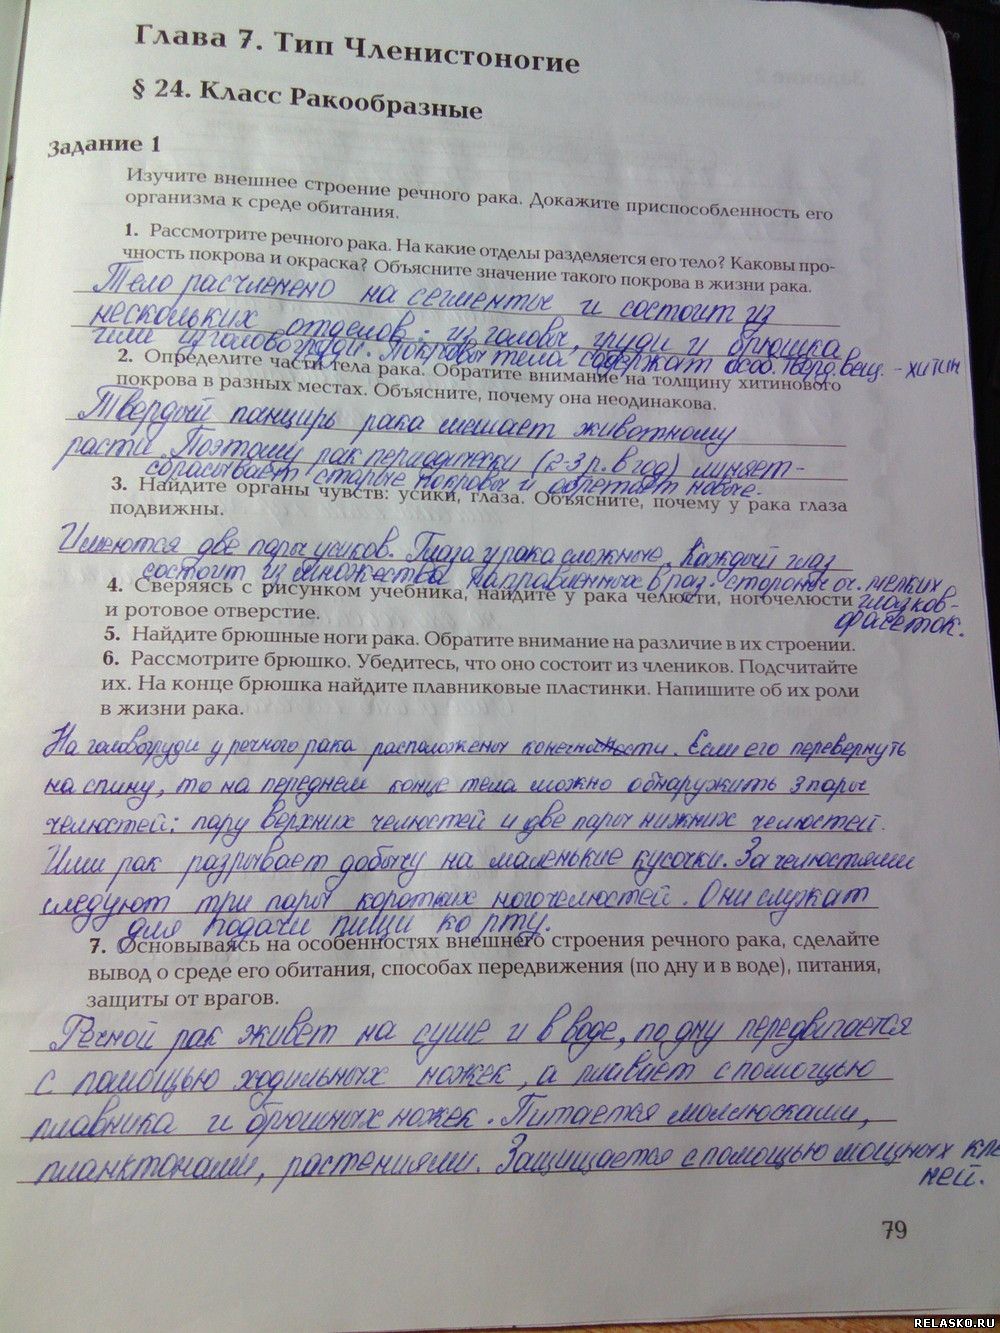 Глава 7. Тип Членистоногие
§ 24. Класс Ракообразные
Задание 1
Изучите внешнее строение речного рака. Докажите приспособленность его
организма к среде обитания.
1. Рассмотрите речного рака. На какие отделы разделяется его тело? Каковы про-
чность покрова и окраска? Объясните значение такого покрова в жизни рака.
Тело расчленено на сегменты и состоит из
нескольких отделов: из головы, груди и брюшка
или из головогруди. Покровы тела содержат особ. тверд. вещ. - хитин
2. Определите части тела рака. Обратите внимание на толщину хитинового
покрова в разных местах. Объясните, почему она неодинакова.
Твердый панцирь рака мешает животному
расти. Поэтому рак периодически (2-3 р. в год) линяет-
сбрасывает старые покровы и обретает новые.
3. Найдите органы чувств: усики, глаза. Объясните, почему у рака глаза
подвижны.
Имеются две пары усиков. Глаза у рака сложные. Каждый глаз
состоит из множества направленных в раз. стороны оч. мелких
4. Сверяясь с рисунком учебника, найдите у рака челюсти, ногочелюсти глазков-
и ротовое отверстие. фасеток.
5. Найдите брюшные ноги рака. Обратите внимание на различие в их строении.
6. Рассмотрите брюшко. Убедитесь, что оно состоит из члеников. Подсчитайте
их. На конце брюшка найдите плавниковые пластинки. Напишите об их роли
в жизни рака.
На головогруди у речного рака расположены конечности. Если его перевернуть
на спину, то на переднем конце тела можно обнаружить 3 пары
челюстей: пару верхних челюстей и две пары нижних челюстей.
Ими рак разрывает добычу на маленькие кусочки. За челюстями
следуют три пары коротких ногочелюстей. Они служат
для подачи пищи ко рту.
7. Основываясь на особенностях внешнего строения речного рака, сделайте
вывод о среде его обитания, способах передвижения (по дну и в воде), питания,
защиты от врагов.
Речной рак живет на суше и в воде, по дну передвигается
с помощью ходильных ножек, а плавает с помощью
плавника и брюшных ножек. Питается моллюсками,
планктонами, растениями. Защищается с помощью мощных кле
ней.
79
RELASKO.RU